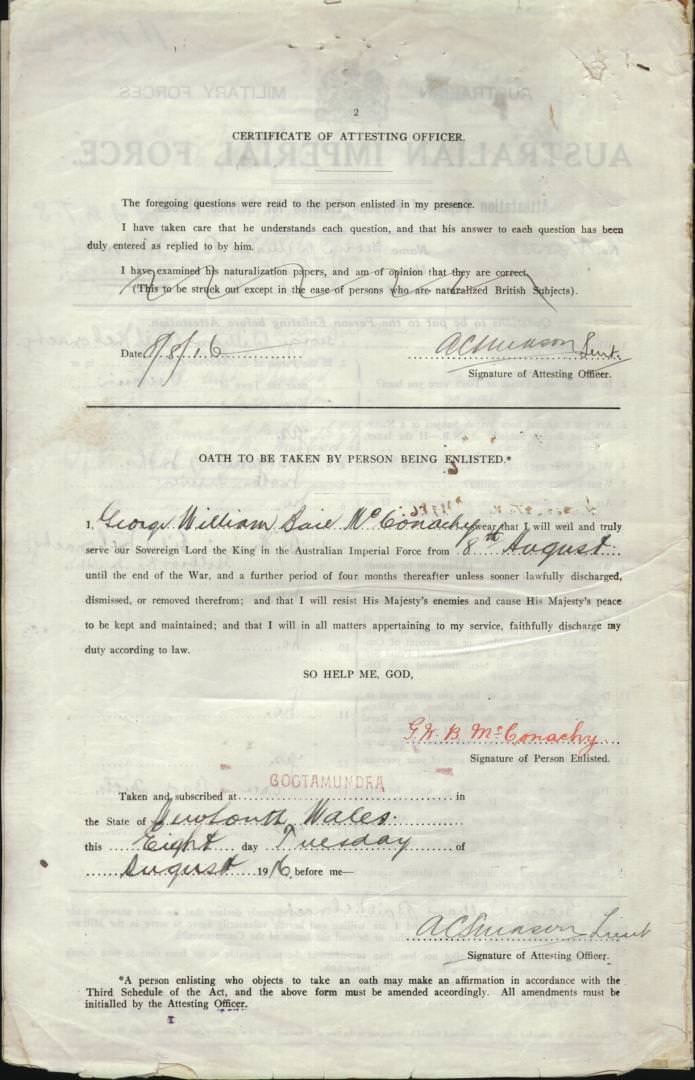 2
CERTIFICATE OF ATTESTING OFFICER.
The foregoing questions were read to the person enlisted in my presence.
I have taken care that he understands each question, and that his answer to each question has been
duly entered as replied to by him.
I have examined his naturalization papers, and am of opinion that they are correct.
(This to be struck out except in the case of persons who are naturalized British Subjects).
Date 8/8/16 Lieut.
Signature of Attesting Officer.
OATH TO BE TAKEN BY PERSON BEING ENLISTED.*
I, George William Baie McConachy swear that I will well and truly
serve our Sovereign Lord the King in the Australian Imperial Force from 8th August
until the end of the War, and a further period of four months thereafter unless sooner lawfully discharged,
dismissed, or removed therefrom; and that I will resist His Majesty's enemies and cause His Majesty's peace
to be kept and maintained; and that I will in all matters appertaining to my service, faithfully discharge my
duty according to law.
SO HELP ME, GOD,
G. W. B. McConachy
Signature of Person Enlisted.
COOTAMUNDRA
Taken and subscribed at in
the State of New South Wales.
this Eight day Tuesday of
August 1916 before me—
Lieut
Signature of Attesting Officer.
*A person enlisting who objects to take an oath may make an affirmation in accordance with the
Third Schedule of the Act, and the above form must be amended accordingly. All amendments must be
initialled by the Attesting Officer.